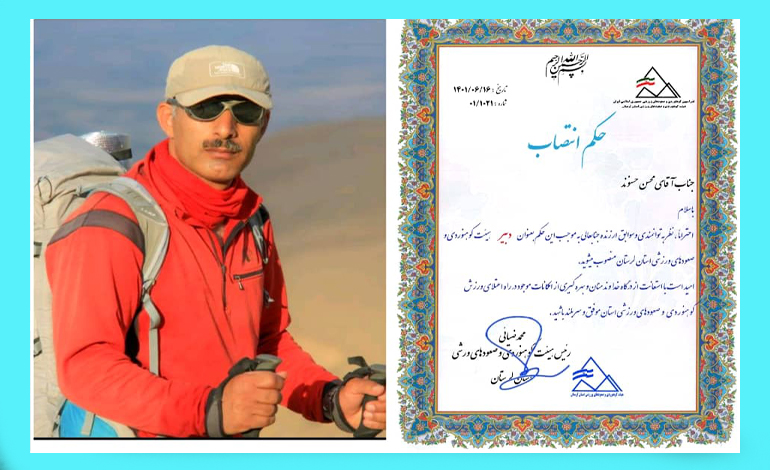 THE NORTH FACE
بسم الله الرحمن الرحیم
تاریخ : ۱۴۰۱/۰۶/۱۶
شماره : ۰۱/۱۰۲۱
فدراسیون کوهنوردی و صعودهای ورزشی جمهوری اسلامی ایران
هیئت کوهنوردی و صعودهای ورزشی استان لرستان
حکم انتصاب
جناب آقای محسن حسنوند
باسلام
احتراماً، نظر به توانمندی و سوابق ارزنده جنابعالی به موجب این حکم بعنوان دبیر هیئت کوهنوردی و
صعودهای ورزشی استان لرستان منصوب میشوید.
امید است با استعانت از درگاه خداوند منان و بهره گیری از امکانات موجود در راه اعتلای ورزش
کوهنوردی و صعودهای ورزشی استان موفق و سربلند باشید.
محمد ضیائی
رئیس هیئت کوهنوردی و صعودهای ورزشی
استان لرستان
هیئت کوهنوردی و صعودهای ورزشی استان لرستان